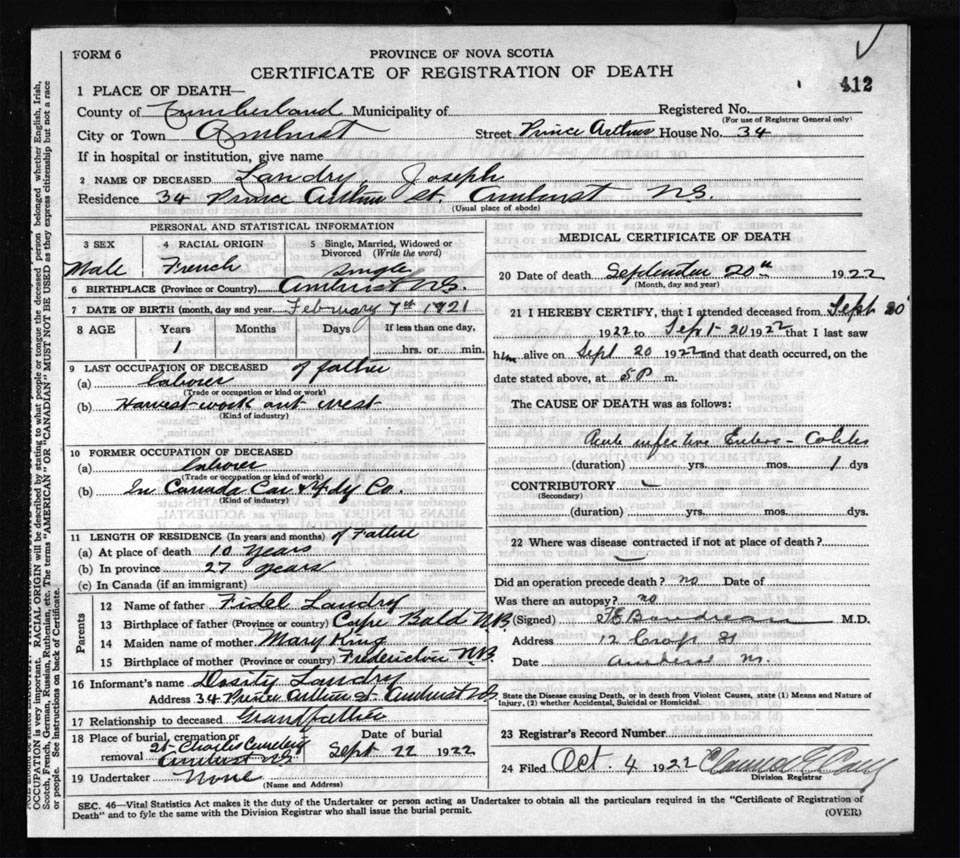 FORM 6
PROVINCE OF NOVA SCOTIA
CERTIFICATE OF REGISTRATION OF DEATH
412
1 PLACE OF DEATH—
County of Cumberland Municipality of
Registered No.
(For use of Registrar General only)
City or Town Amherst Street Prince Arthur House No. 34
If in hospital or institution, give name
2 NAME OF DECEASED Landry, Joseph
Residence 34 Prince Arthur St. Amherst N.S.
(Usual place of abode)
PERSONAL AND STATISTICAL INFORMATION
3 SEX
Male
4 RACIAL ORIGIN
French
5 Single, Married, Widowed or Divorced (Write the word)
Single
6 BIRTHPLACE (Province or Country) Amherst N.S.
7 DATE OF BIRTH (month, day and year February 7th 1921
8 AGE
Years Months Days If less than one day,
1 hrs. or min.
9 LAST OCCUPATION OF DECEASED of father
(a) laborer
(Trade or occupation or kind or work)
(b) Harvest work out west
(Kind of industry)
10 FORMER OCCUPATION OF DECEASED
(a) laborer
(Trade or occupation or kind or work)
(b) In Canada Car & Fdy Co.
(Kind of industry)
11 LENGTH OF RESIDENCE (In years and months) of Father
(a) At place of death 10 years
(b) In province 27 years
(c) In Canada (if an immigrant)
Parents
12 Name of father Fidel Landry
13 Birthplace of father (Province or country) Cape Bald N.B.
14 Maiden name of mother Mary King
15 Birthplace of mother (Province or country) Fredericton N.B.
16 Informant's name Landry
Address 34 Prince Arthur St. Amherst N.S.
17 Relationship to deceased Grandfather
18 Place of burial, cremation or removal St. Charles Cemetery Amherst N.S.
Date of burial
Sept 22 1922
19 Undertaker None
(Name and Address)
MEDICAL CERTIFICATE OF DEATH
20 Date of death September 20th 1922
(Month, day and year)
21 I HEREBY CERTIFY, that I attended deceased from Sept 20
1922 to Sept 20 1922 that I last saw
him alive on Sept 20 1922 and that death occurred, on the
date stated above, at P m.
The CAUSE OF DEATH was as follows:
Acute infective Entero - Colitis
(duration) yrs. mos. 1 dys
CONTRIBUTORY
(Secondary)
(duration) yrs. mos. dys.
22 Where was disease contracted if not at place of death?
Did an operation precede death? no Date of
Was there an autopsy? no
(Signed) M.D.
Address 12 St
Date
State the Disease causing Death, or in death from Violent Causes, state (1) Means and Nature of
Injury, (2) whether Accidental, Suicidal or Homicidal.
23 Registrar's Record Number
24 Filed Oct. 4 1922
Division Registrar
SEC. 46—Vital Statistics Act makes it the duty of the Undertaker or person acting as Undertaker to obtain all the particulars required in the "Certificate of Registration of
Death" and to fyle the same with the Division Registrar who shall issue the burial permit.
(OVER)
OCCUPATION is very important. RACIAL ORIGIN will be described by stating to what people or tongue the deceased person belonged whether English, Irish,
Scotch, French, German, Russian, Ruthenian, etc. The terms "AMERICAN" OR "CANADIAN" MUST NOT BE USED as they express citizenship but not a race
or people. See instructions on back of Certificate.